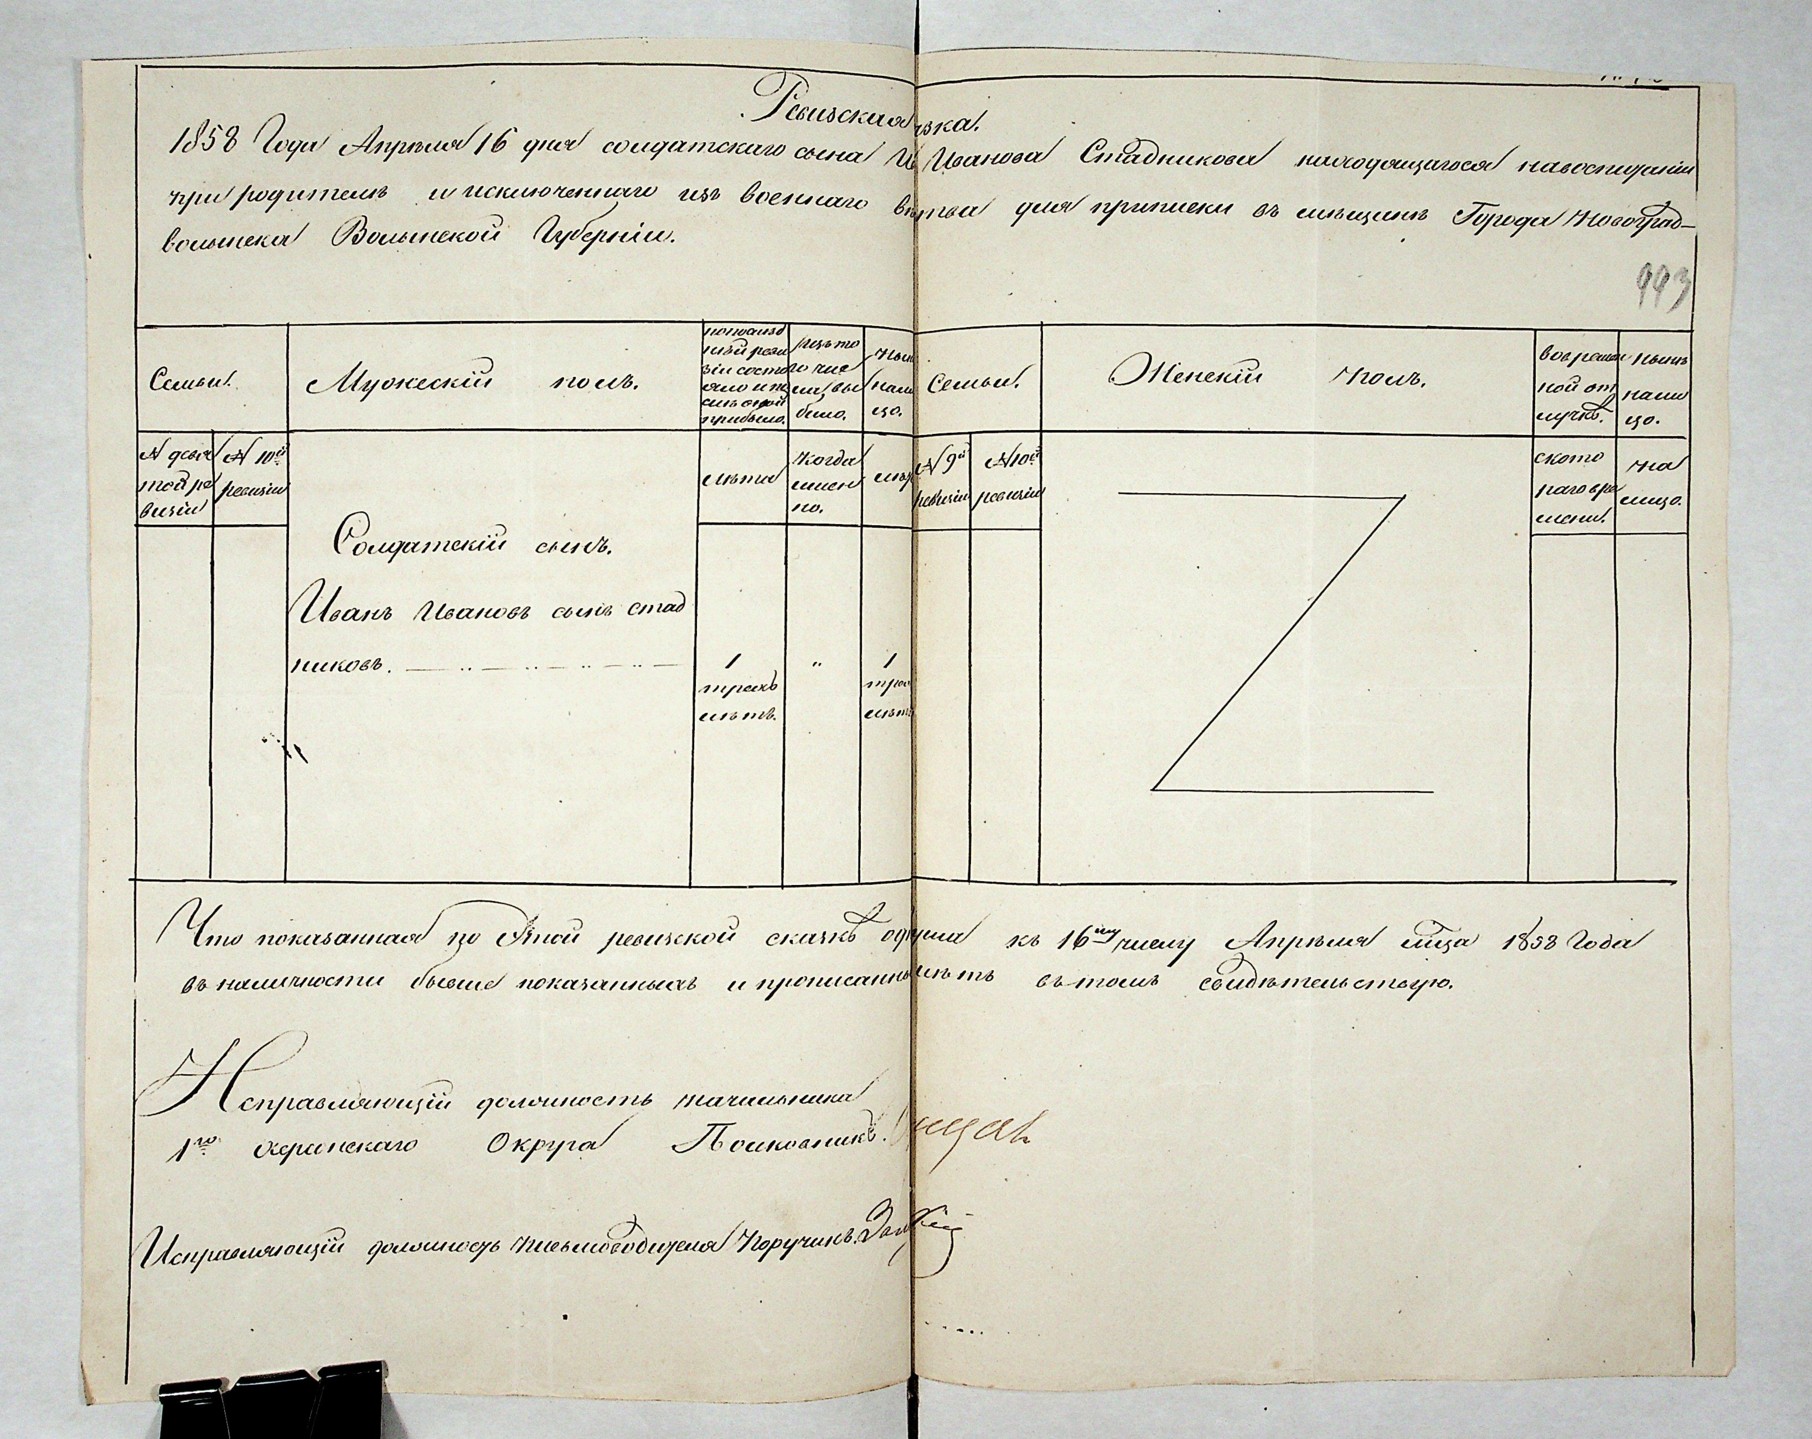 Ревизская
зка.
1858 Года Апреля 16 дня солдатскаго сына И Иванова Стадникова находящагося навоспитании
при родителе и исключеннаго изъ военнаго ведомства для приписки въ мещане Города Новоград-
волынска Волынской Губернiи.
993
Семьи.
Мужескiй полъ.
попослед
ней реви
зiи состо
яло и по
сле оной
прибыло.
изъ то
го чис
ла вы
было.
ныне
нали
цо.
Семьи.
Женскiй полъ.
вовремен
ной от
лучке.
ныне
нали
цо.
№ девя
той ре
визiи
№ 10й
ревизiи
лета
Когда
имен
но.
лета
№ 9й
ревизiи
№ 10й
ревизiи
ското
раго вре
мени.
на
лицо.
Солдатскiй сынъ.
Иванъ Ивановъ сынъ Стад
никовъ.
1 „ 1
трехъ
летъ.
трех
летъ
Что показанная по этой ревизской сказке одна душа къ 16му числу Апреля м-ца 1858 Года
въ наличности бывше показаннымъ и прописанны летъ въ томъ свидетельствую.
Исправляющiй должность Начальника
1го Округа Полковникъ.
Исправляющiй должность Письмоводителя Поручикъ